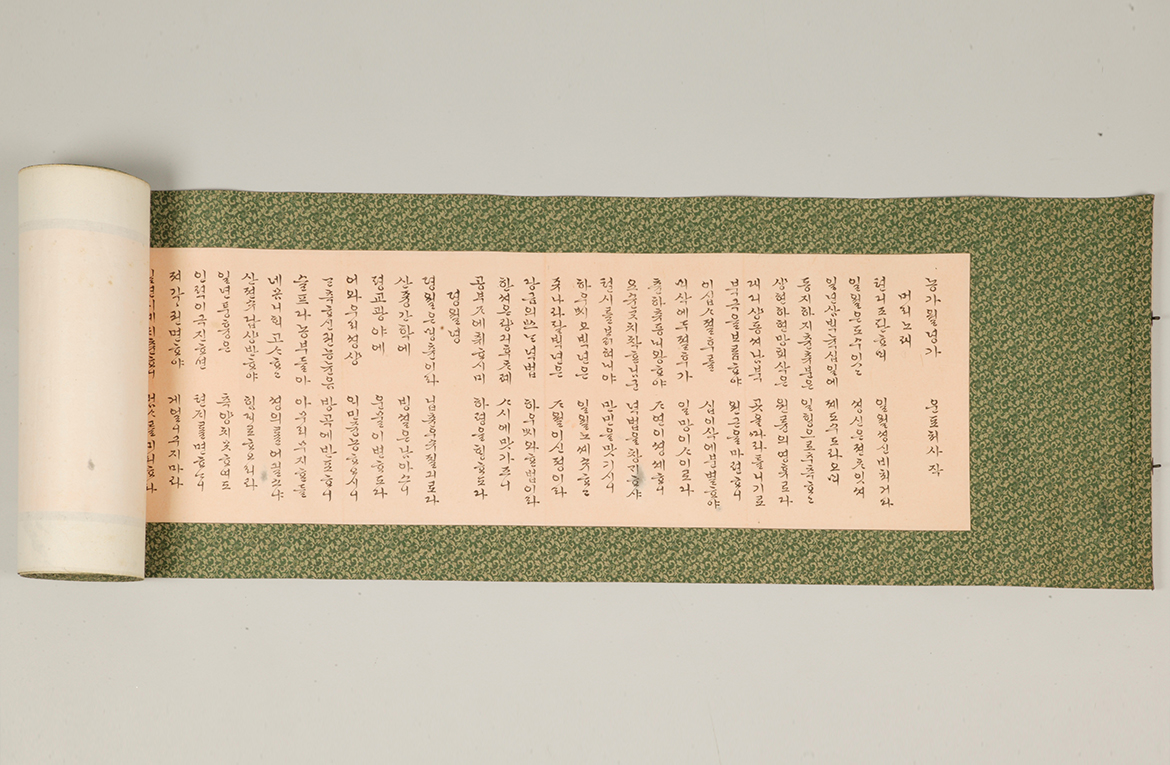 농가월녕가 운포처사작
머리노래
텬디조판ᄒᆞᄆᆡ 일월셩신비최거다
일월은도수잇고 셩신은전ᄎᆞ잇셔
일년삼ᄇᆡᆨ육십일에 제도수도라오ᄆᆡ
동지하지츈츄분은 일ᄒᆡᆼ으로츄측ᄒᆞ고
상현하현망회삭은 월륜의영휴로다
대디상동셔남북 곳을따라틀니기로
북극을보람ᄒᆞ야 원근을마련ᄒᆞ니
이십ᄉᆞ절후를 십이삭에분별ᄒᆞ야
ᄆᆡ삭에두절후가 일망이ᄉᆞ이로다
츈하츄동ᄂᆡ왕ᄒᆞ야 ᄌᆞ연이셩셰ᄒᆞ니
요순갓치착ᄒᆞᆫ님군 녁법을창ᄀᆡᄒᆞ사
텬시를밝혀ᄂᆡ야 만민을맛기시니
하우씨오ᄇᆡᆨ년은 인월노셰슈ᄒᆞ고
쥬나라팔ᄇᆡᆨ년은 ᄌᆞ월이신졍이라
당금의쓰ᄂᆞᆫ녁법 하우씨와ᄒᆞᆫ법이라
한셔온량긔후ᄎᆞ례 ᄉᆞ시에맛가즈니
공부ᄌᆞ에취ᄒᆞ시미 하령을ᄒᆡᆼᄒᆞ도다
졍월녕
졍월은ᄆᆡᆼ츈이라 닙츈우슈졀긔로다
산즁간학에 빙셜은남아스니
평교광야에 운물이변ᄒᆞ도다
어와우리셩상 ᄋᆡ민즁농ᄒᆞ오시니
간측ᄒᆞ신권농륜음 방곡에반포ᄒᆞ니
슬프다농부들아 아무리무지ᄒᆞᆫ들
네몸니ᄒᆡ고ᄉᆞᄒᆞ고 셩의를어긜소냐
산젼슈답상반ᄒᆞ야 힘ᄃᆡ로ᄒᆞ오리라
일년풍흉은 측량치못ᄒᆞ여도
인력이극진ᄒᆞ면 텬ᄌᆡ를면ᄒᆞ나니
져각각권면ᄒᆞ야 게얼니구지마라